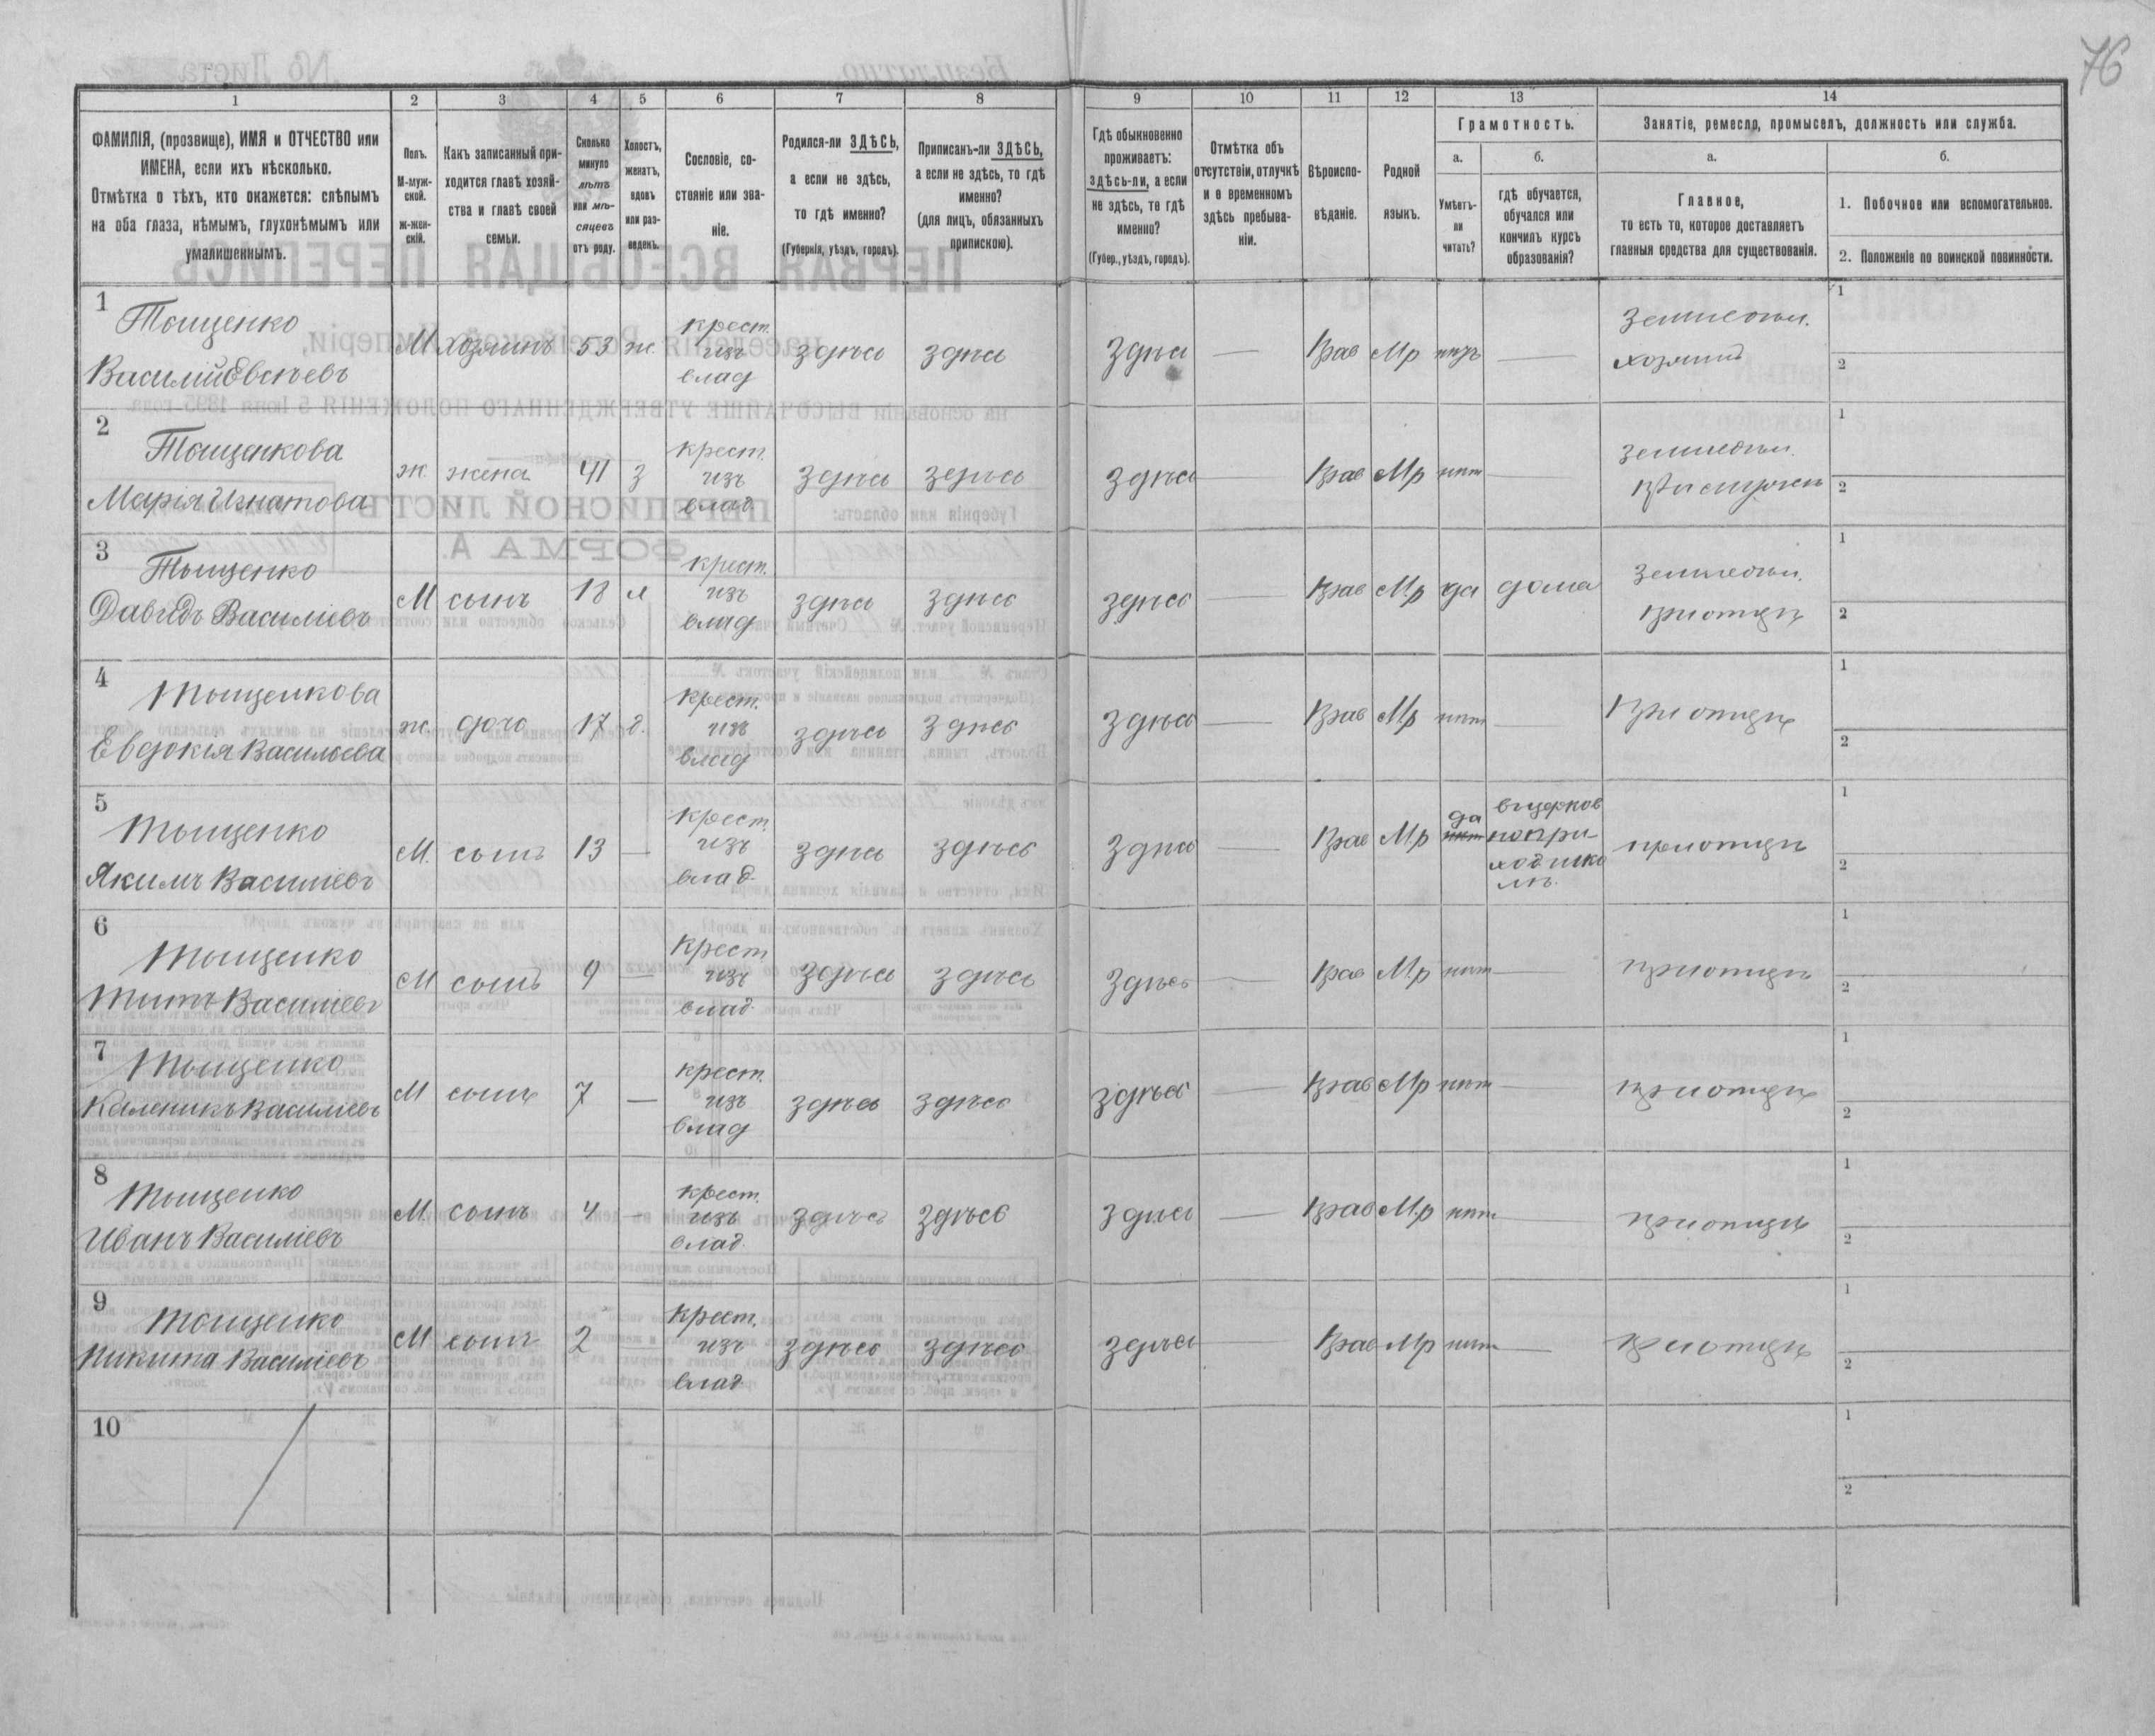 76
1 2 3 4 5 6 7 8 9 10 11 12 13 14
ФАМИЛІЯ, (прозвище), ИМЯ и ОТЧЕСТВО или
ИМЕНА, если ихъ нѣсколько.
Отмѣтка о тѣхъ, кто окажется: слѣпымъ
на оба глаза, нѣмымъ, глухонѣмымъ или
умалишеннымъ.
Полъ.
М-муж-
ской.
ж-жен-
скій.
Какъ записанный при-
ходится главѣ хозяй-
ства и главѣ своей
семьи.
Сколько
минуло
лѣтъ
или мѣ-
сяцевъ
отъ роду.
Холостъ,
женатъ,
вдовъ
или раз-
веденъ.
Сословіе, со-
стояніе или зва-
ніе.
Родился-ли ЗДѢСЬ,
а если не здѣсь,
то гдѣ именно?
(Губернія, уѣздъ, городъ).
Приписанъ-ли ЗДѢСЬ,
а если не здѣсь, то гдѣ
именно?
(для лицъ, обязанныхъ
припискою).
Гдѣ обыкновенно
проживаетъ:
здѣсь-ли, а если
не здѣсь, то гдѣ
именно?
(Губер., уѣздъ, городъ).
Отмѣтка объ
отсутствіи, отлучкѣ
и о временномъ
здѣсь пребыва-
ніи.
Вѣроиспо-
вѣданіе.
Родной
языкъ.
Грамотность.
а.
Умѣетъ-
ли
читать?
б.
гдѣ обучается,
обучался или
кончилъ курсъ
образованія?
Занятіе, ремесло, промыселъ, должность или служба.
а.
Главное,
то есть то, которое доставляетъ
главныя средства для существованія.
б.
1. Побочное или вспомогательное.
2. Положеніе по воинской повинности.
1
Тыщенко
Василій Евсѣевъ
М хозяинъ 53 ж.
крест.
изъ
влад
здѣсь здѣсь здѣсь — Прав М.р нѣтъ —
Земледѣл.
хозяинъ
1
2
2
Тыщенкова
Марія Игнатова
ж. жена 41 з
крест.
изъ
влад.
здѣсь здѣсь здѣсь — Прав М.р нѣт —
земледѣл.
1
2
3
Тыщенко
Давидъ Василіевъ
М сынъ 18
крест.
изъ
влад
здѣсь здѣсь здѣсь — Прав М.р да дома
земледѣл.
при отцѣ
1
2
4
Тыщенкова
Евдокія Васильева
ж. дочь 17 д.
крест.
изъ
влад
здѣсь здѣсь здѣсь — Прав М.р нѣт —
При отцѣ
1
2
5
Тыщенко
Якимъ Василіевъ
М. сынъ 13 —
крест.
изъ
влад.
здѣсь здѣсь здѣсь — Прав М.р
да
нѣт
въ церков
но при-
ход шко
лѣ.
при отцѣ
1
2
6
Тыщенко
Титъ Василіевъ
М сынъ 9 —
Крест
изъ
влад.
здѣсь здѣсь здѣсь — Прав М.р нѣт —
при отцѣ
1
2
7
Тыщенко
Каленикъ Василіевъ
М сынъ 7 —
крест.
изъ
влад
здѣсь здѣсь здѣсь — Прав М.р нѣт —
при отцѣ
1
2
8
Тыщенко
Иванъ Василіевъ
М. сынъ 4 —
крест.
изъ
влад.
здѣсь здѣсь здѣсь — Прав М.р нѣт
при отцѣ
1
2
9
Тыщенко
Никита Василіевъ
М сынъ 2 —
крест.
изъ
влад.
здѣсь здѣсь здѣсь — Прав М.р нѣт —
при отцѣ
1
2
10
1
2